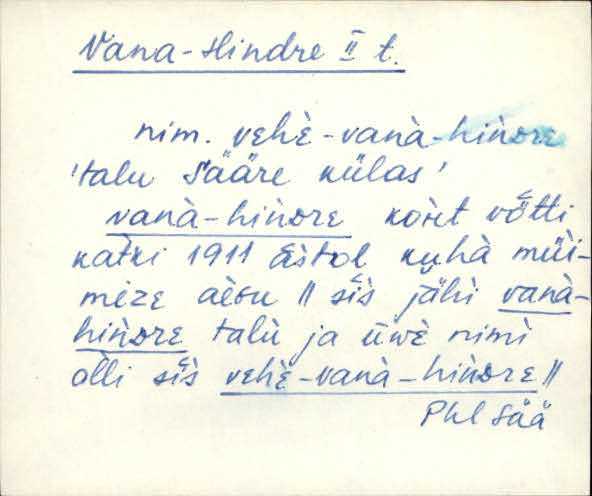 Vana-Hindre II t.
nim. vehè-vanà-hiǹdre
'talu Sääre külas'
vanà-hiǹdre kor̀t võtti
katki 1911 àstol kuhà müi-
mèze aèsu || sìs jähì vanà-
hiǹdre talù ja üwè nimì
òlli sìs vehè-vanà-hiǹdre ||
Phl Sää